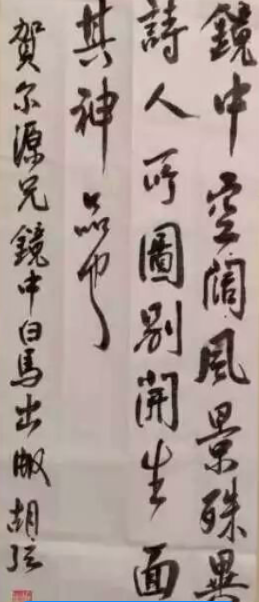 鏡中空闊風景殊異
詩人所圖別開生面
其神品也
賀尔源兄鏡中白馬出版 胡弦